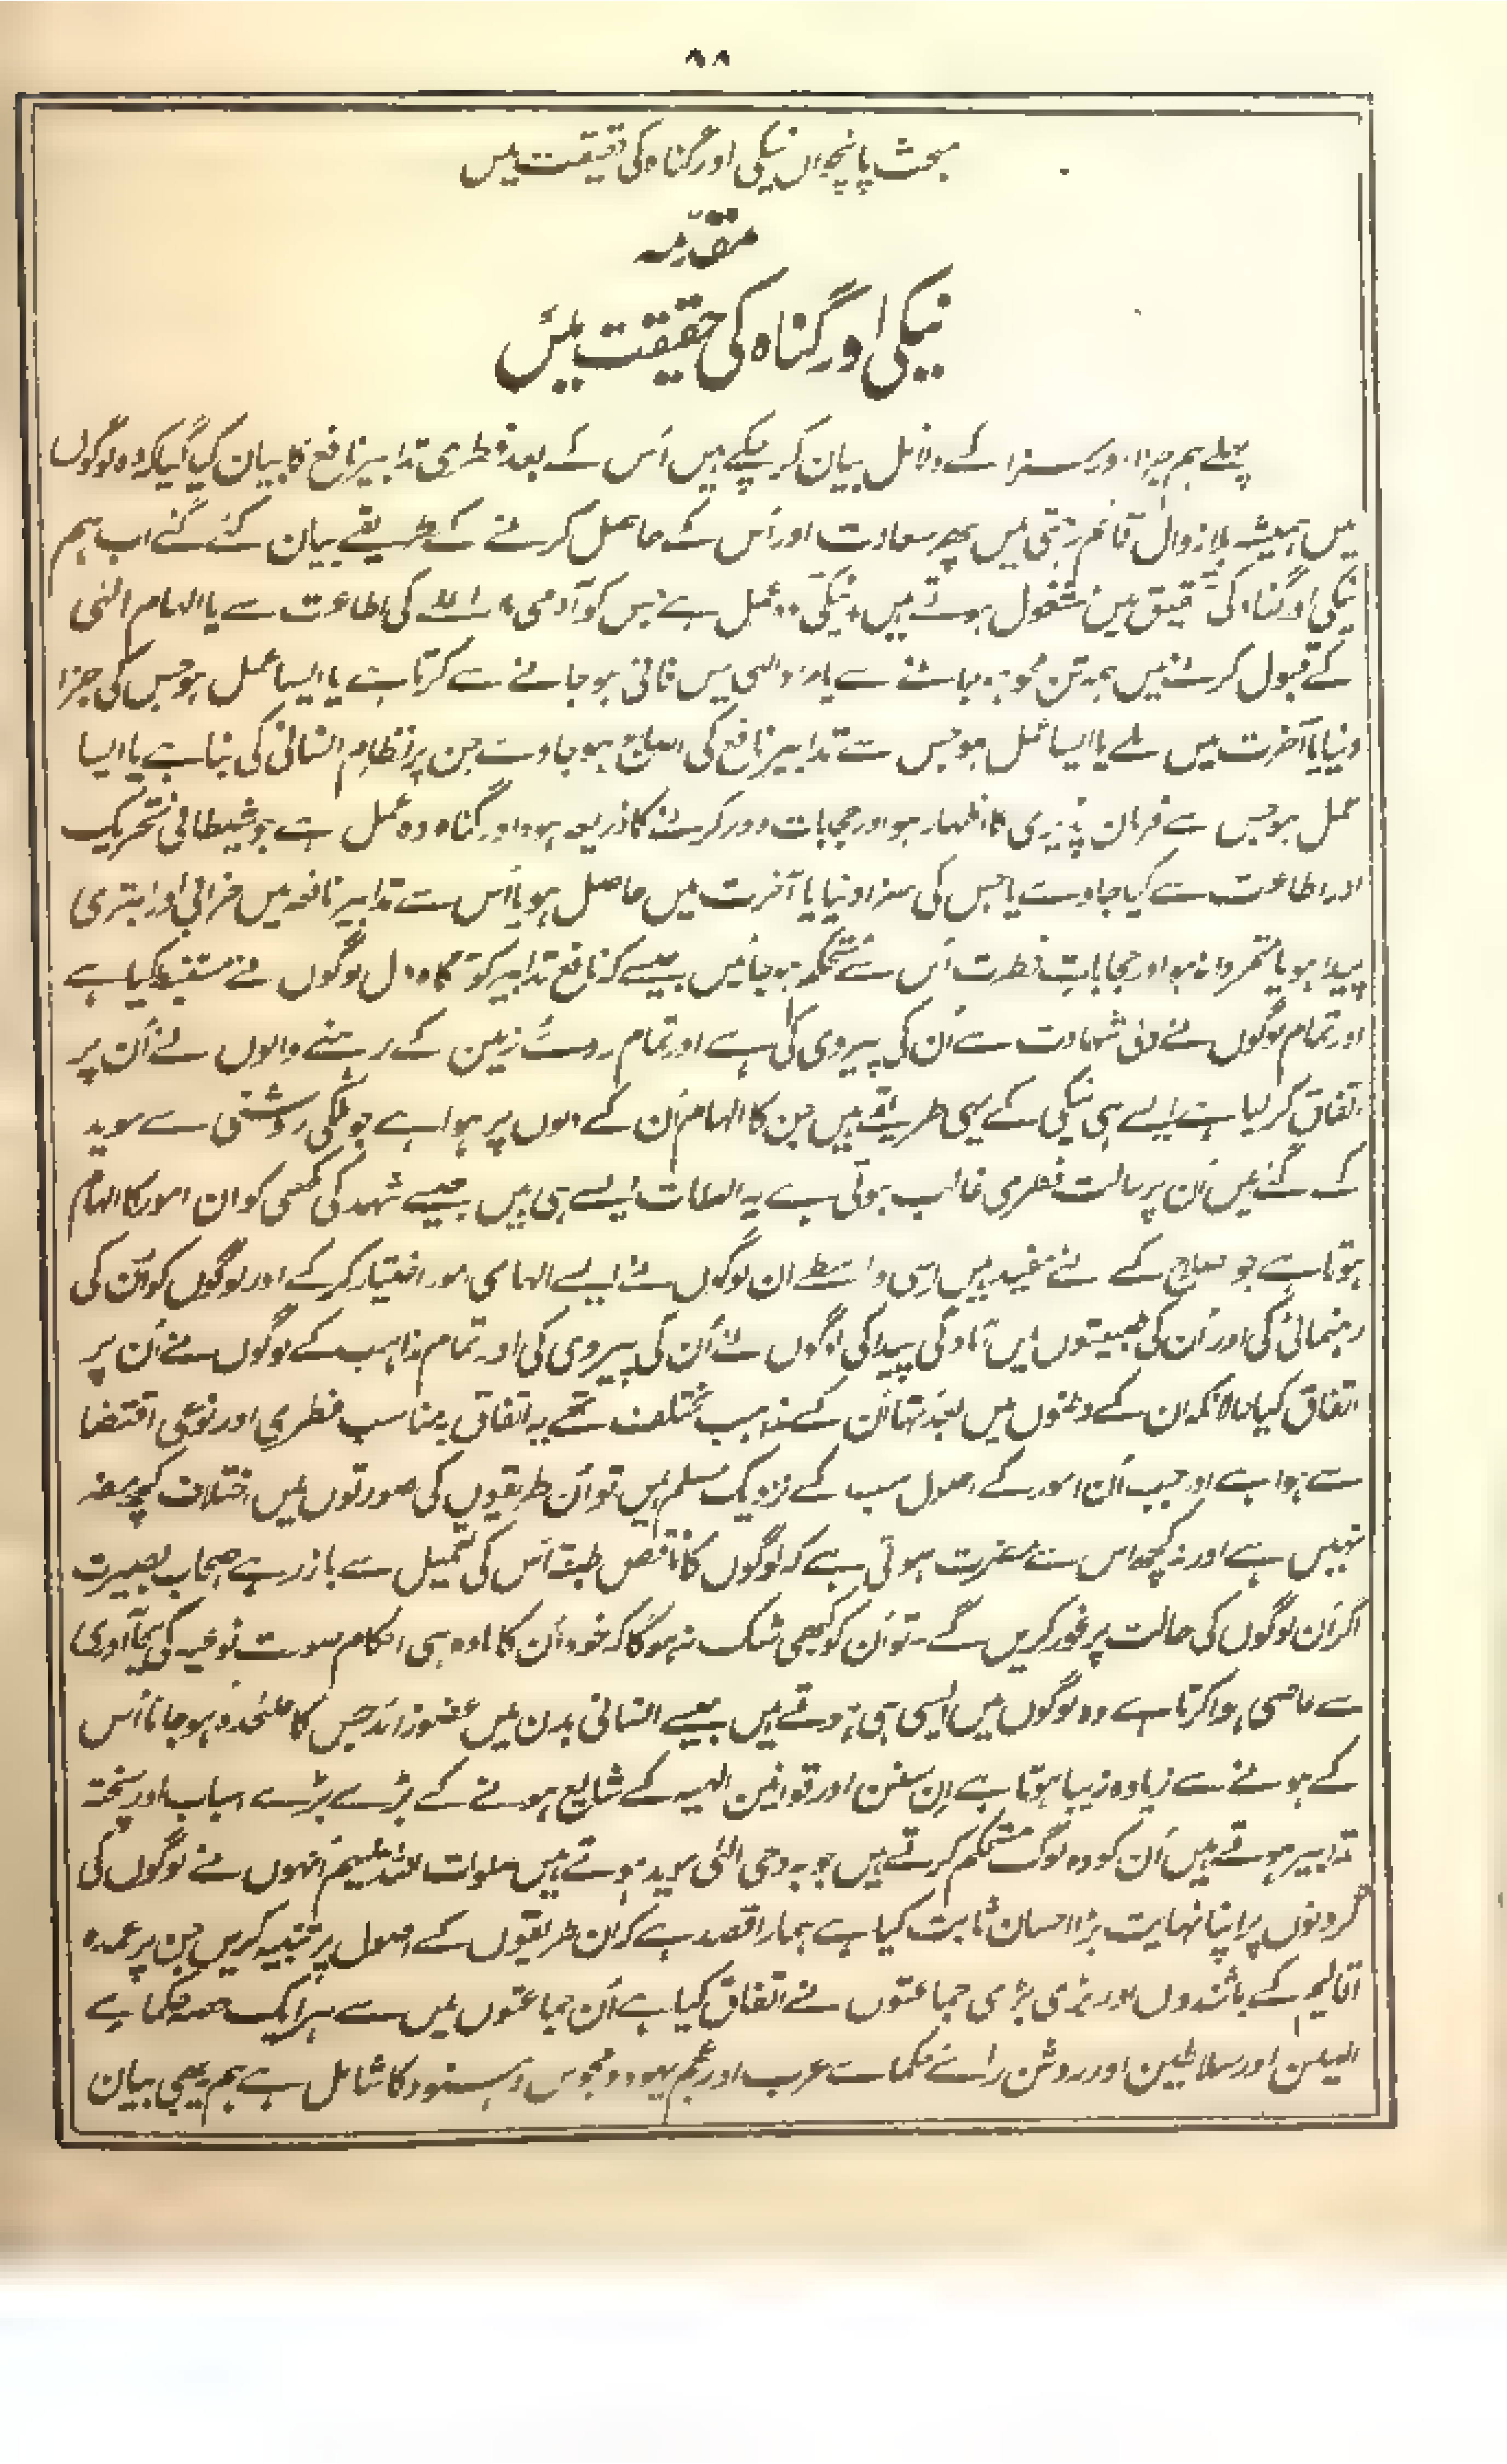 ۸۸
مبحث پانچواں نیکی اور گناہ کی حقیقت میں
مقدمہ
نیکی اور گناہ کی حقیقت میں
پہلے ہم جزا اور سزا کے دلائل بیان کر چکے ہیں اُس کے بعد فطری تدابیر نافع کا بیان کیا گیا کہ وہ لوگوں
میں ہمیشہ بلا زوال قائم رہتی ہیں پھر سعادت اور اُس کے حاصل کرنے کے طریقے بیان کئے گئے اب ہم
نیکی اور گناہ کی تحقیق میں مشغول ہوتے ہیں نیکی وہ عمل ہے جس کو آدمی ملاء اعلیٰ کی اطاعت سے یا الہام الٰہی
کے قبول کرنے میں ہمہ تن محو ہو جانے سے یا مراد الٰہی میں فانی ہو جانے سے کرتا ہے یا ایسا عمل ہو جس کی جزا
دنیا یا آخرت میں ملے یا ایسا عمل ہو جس سے تدابیر نافع کی اصلاح ہو جاوے جن پر نظام انسانی کی بنا ہے یا ایسا
عمل ہو جس سے فرمان پذیری کا اظہار ہو اور حجابات دور کرنے کا ذریعہ ہو اور گناہ وہ عمل ہے جو شیطانی تحریک
اور اطاعت سے کیا جاوے یا جس کی سزا دنیا یا آخرت میں حاصل ہو یا اُس سے تدابیر نافعہ میں خرابی اور ابتری
پیدا ہو یا تمردانہ ہو اور حجابات فطرت اُس سے مستحکم ہو جائیں جیسے کہ نافع تدابیر کو آگاہ دل لوگوں نے مستنبط کیا ہے
اور تمام لوگوں نے دلی شہادت سے اُن کی پیروی کی ہے اور تمام روئے زمین کے رہنے والوں نے اُن پر
اتفاق کر لیا ہے ایسے ہی نیکی کے بھی طریقے ہیں جن کا الہام اُن کے دلوں پر ہوا ہے جو ملکی روشنی سے موید
کے گئے ہیں اُن پر حالت فطری غالب ہوتی ہے یہ الہامات ایسے ہی ہیں جیسے شہد کی مکھی کو ان امور کا الہام
ہوتا ہے جو صلاح کے لئے مفید ہیں اسی واسطے ان لوگوں نے ایسے الہامی امور اختیار کر کے اور لوگوں کو اُن کی
رہنمائی کی اور اُن کی طبیعتوں میں آمادگی پیدا کی لوگوں نے اُن کی پیروی کی اور تمام مذاہب کے لوگوں نے اُن پر
اتفاق کیا حالانکہ ان کے وطنوں میں بعد تھا اُن کے مذہب مختلف تھے یہ اتفاق بمناسب فطری اور نوعی اقتضا
سے ہوا ہے اور جب اُن امور کے اصول سب کے نزدیک مسلم ہیں تو اُن طریقوں کی صورتوں میں اختلاف کچھ مضر
نہیں ہے اور نہ کچھ اس سے مضرت ہوتی ہے کہ لوگوں کا ناقص طبقہ اُس کی تعمیل سے باز رہے اصحاب بصیرت
اگر اُن لوگوں کی حالت پر غور کریں گے۔ تو اُن کو کبھی شک نہ ہوگا کہ خود اُن کا مادہ ہی احکام صورت نوعیہ کی بجا آوری
سے عاصی ہوا کرتا ہے وہ لوگوں میں ایسی ہی ہوتے ہیں جیسے انسانی بدن میں عضو زائد جس کا علیحدہ ہو جانا اُس
کے ہونے سے زیادہ زیبا ہوتا ہے ان سنن اور قوانین الٰہیہ کے شایع ہونے کے بڑے بڑے اسباب اور پختہ
تدابیر ہوتے ہیں اُن کو وہ لوگ مستحکم کرتے ہیں جو بہ وحی الٰہی موید ہوتے ہیں صلوات اللہ علیہم اُنہوں نے لوگوں کی
گردنوں پر اپنا نہایت بڑا احسان ثابت کیا ہے ہمارا قصد ہے کہ اُن طریقوں کے اصول پر تنبیہ کریں جن پر عمدہ
اقالیم کے باشندوں اور بڑی بڑی جماعتوں نے اتفاق کیا ہے اُن جماعتوں میں سے ہر ایک حصہ حکمائے
الٰہیین اور سلاطین اور روشن رائے حکمائے عرب اور عجم یہود و مجوس و ہنود کا شامل ہے ہم یہ بھی بیان